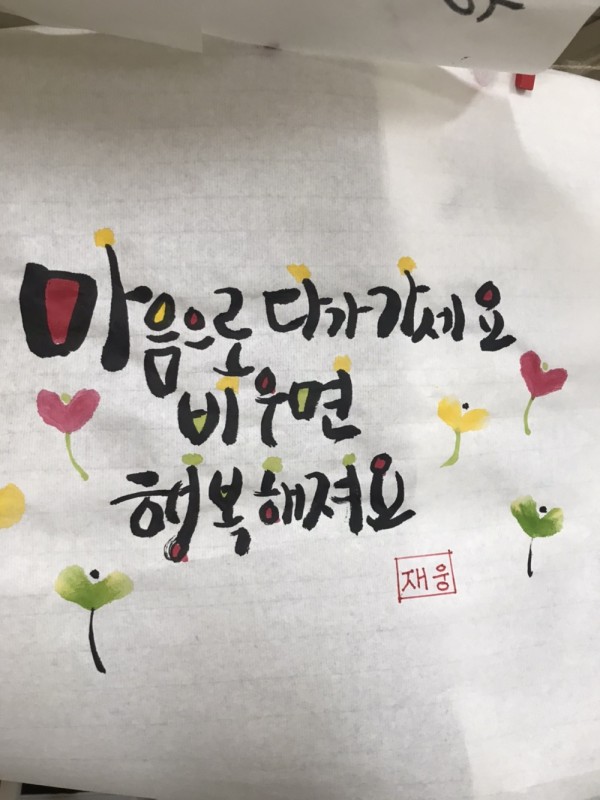 마음으로 다가가세요
비우면
행복해져요
재웅